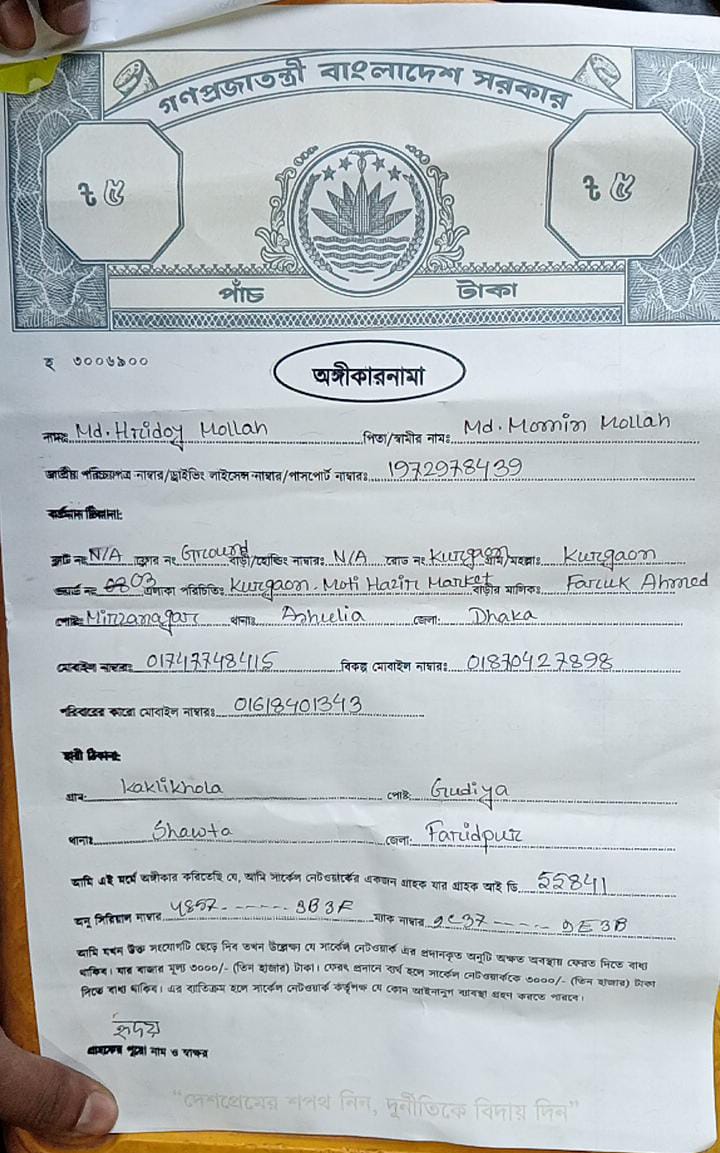 গণপ্রজাতন্ত্রী বাংলাদেশ সরকার
৳ ৫ ৳ ৫
পাঁচ টাকা
হ ৩০০৬৯০০
অঙ্গীকারনামা
নামঃ Md. Hridoy Mollah পিতা/স্বামীর নামঃ Md. Momin Mollah
জাতীয় পরিচয়পত্র নাম্বার/ড্রাইভিং লাইসেন্স নাম্বার/পাসপোর্ট নাম্বারঃ 1972978439
বর্তমান ঠিকানা:
ফ্লাট নং N/A ফ্লোর নং Ground বাড়ী/হোল্ডিং নাম্বারঃ N/A রোড নং Kurgaon গ্রাম/মহল্লাঃ Kurgaon
ওয়ার্ড নং 03 এলাকা পরিচিতিঃ Kurgaon. Moti Hazir Market বাড়ীর মালিকঃ Faruk Ahmed
পোষ্টঃ Mirzanagar থানাঃ Ashulia জেলা: Dhaka
মোবাইল নাম্বারঃ 01747748415 বিকল্প মোবাইল নাম্বারঃ 01870427898
পরিবারের কারো মোবাইল নাম্বারঃ 01618401343
স্থায়ী ঠিকানা:
গ্রাম: Kaklikhola পোষ্ট: Gudiya
থানাঃ Shawta জেলা: Faridpur
আমি এই মর্মে অঙ্গীকার করিতেছি যে, আমি সার্কেল নেটওয়ার্কের একজন গ্রাহক যার গ্রাহক আই ডি 55841
অনু সিরিয়াল নাম্বার 4857------3B3F ম্যাক নাম্বার 9C37-----DE3B
আমি যখন উক্ত সংযোগটি ছেড়ে দিব তখন উল্লেখ্য যে সার্কেল নেটওয়ার্ক এর প্রদানকৃত অনুটি অক্ষত অবস্থায় ফেরত দিতে বাধ্য
থাকিব। যার বাজার মূল্য ৩০০০/- (তিন হাজার) টাকা। ফেরৎ প্রদানে ব্যর্থ হলে সার্কেল নেটওয়ার্ককে ৩০০০/- (তিন হাজার) টাকা
দিতে বাধ্য থাকিব। এর ব্যতিক্রম হলে সার্কেল নেটওয়ার্ক কর্তৃপক্ষ যে কোন আইনানুগ ব্যাবস্থা গ্রহণ করতে পারবে।
হৃদয়
গ্রাহকের পুরো নাম ও স্বাক্ষর
“দেশপ্রেমের শপথ নিন, দুর্নীতিকে বিদায় দিন”